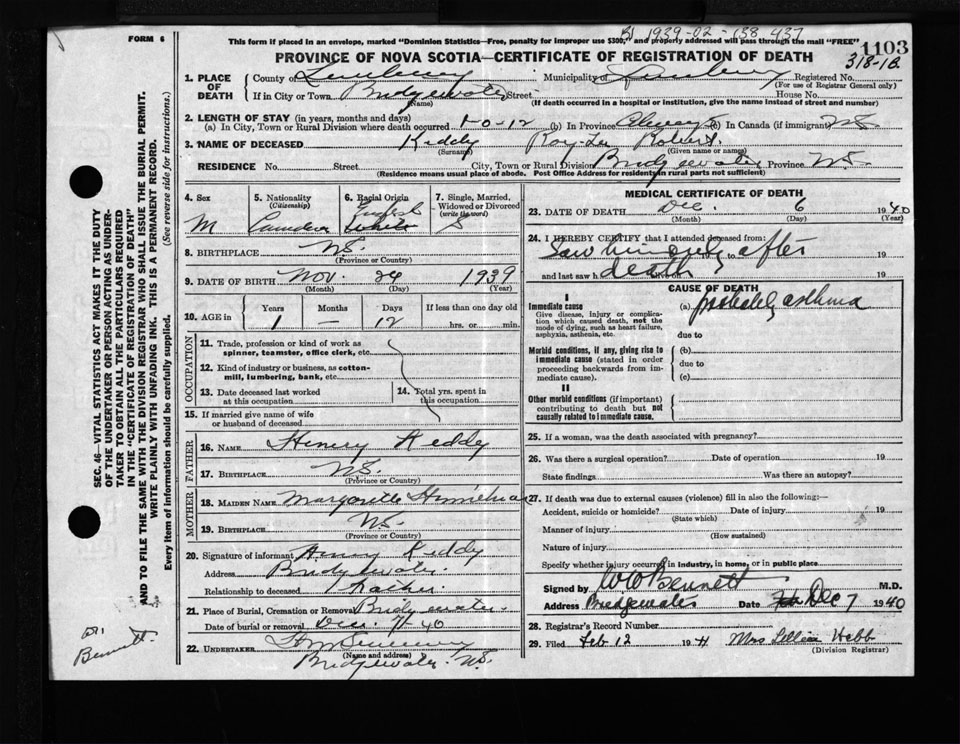 FORM 6
This form if placed in an envelope, marked "Dominion Statistics—Free, penalty for improper use $300," and properly addressed will pass through the mail "FREE"
1939-02-158 437
1103
PROVINCE OF NOVA SCOTIA—CERTIFICATE OF REGISTRATION OF DEATH
318-1B
1. PLACE OF DEATH
County of Lunenburg
Municipality of Lunenburg
Registered No.
(For use of Registrar General only)
If in City or Town Bridgewater Street House No.
(Name)
(If death occurred in a hospital or institution, give the name instead of street and number)
2. LENGTH OF STAY (in years, months and days)
(a) In City, Town or Rural Division where death occurred 1-0-12 (b) In Province Always (c) In Canada (if immigrant) N.S.
3. NAME OF DECEASED Keddy Roy-Lee Robert
(Surname) (Given name or names)
RESIDENCE No. Street City, Town or Rural Division Bridgewater Province N.S.
(Residence means usual place of abode. Post Office Address for residents in rural parts not sufficient)
4. Sex
M
5. Nationality
(Citizenship)
Canadian
6. Racial Origin
English
White
7. Single, Married, Widowed or Divorced
(write the word)
S
8. BIRTHPLACE N.S.
(Province or Country)
9. DATE OF BIRTH Nov. 24 1939
(Month) (Day) (Year)
10. AGE in
Years Months Days If less than one day old
1 — 12 hrs. or min.
OCCUPATION
11. Trade, profession or kind of work as spinner, teamster, office clerk, etc.
12. Kind of industry or business, as cotton-mill, lumbering, bank, etc.
13. Date deceased last worked at this occupation
14. Total yrs. spent in this occupation
15. If married give name of wife or husband of deceased
FATHER
16. NAME Henry Keddy
17. BIRTHPLACE N.S.
(Province or Country)
MOTHER
18. MAIDEN NAME Margorette
19. BIRTHPLACE N.S.
(Province or Country)
20. Signature of informant Henry Keddy
Address Bridgewater
Relationship to deceased Father
21. Place of Burial, Cremation or Removal Bridgewater
Date of burial or removal Dec. 7/40
22. UNDERTAKER
(Name and address)
Bridgewater N.S.
MEDICAL CERTIFICATE OF DEATH
23. DATE OF DEATH Dec. 6 1940
(Month) (Day) (Year)
24. I HEREBY CERTIFY that I attended deceased from:
Saw him only to after 19
and last saw h death 19
CAUSE OF DEATH
I
Immediate cause
Give disease, injury or complication which caused death, not the mode of dying, such as heart failure, asphyxia, asthenia, etc.
(a) probably asthma
due to
Morbid conditions, if any, giving rise to immediate cause (stated in order proceeding backwards from immediate cause).
(b)
due to
(c)
II
Other morbid conditions (if important) contributing to death but not causally related to immediate cause.
25. If a woman, was the death associated with pregnancy?
26. Was there a surgical operation? Date of operation 19
State findings Was there an autopsy?
27. If death was due to external causes (violence) fill in also the following:—
Accident, suicide or homicide? Date of injury 19
(State which)
Manner of injury
(How sustained)
Nature of injury
Specify whether injury occurred in industry, in home, or in public place
Signed by W W Bennett M.D.
Address Bridgewater Date Dec 7 1940
28. Registrar's Record Number
29. Filed Feb 12 1941 Mrs Lillian Hebb
(Division Registrar)
SEC. 46—VITAL STATISTICS ACT MAKES IT THE DUTY
OF THE UNDERTAKER OR PERSON ACTING AS UNDER-
TAKER TO OBTAIN ALL THE PARTICULARS REQUIRED
IN THE "CERTIFICATE OF REGISTRATION OF DEATH"
AND TO FILE THE SAME WITH THE DIVISION REGISTRAR WHO SHALL ISSUE THE BURIAL PERMIT.
WRITE PLAINLY WITH UNFADING INK. THIS IS A PERMANENT RECORD.
Every item of information should be carefully supplied. (See reverse side for instructions.)
Bennett